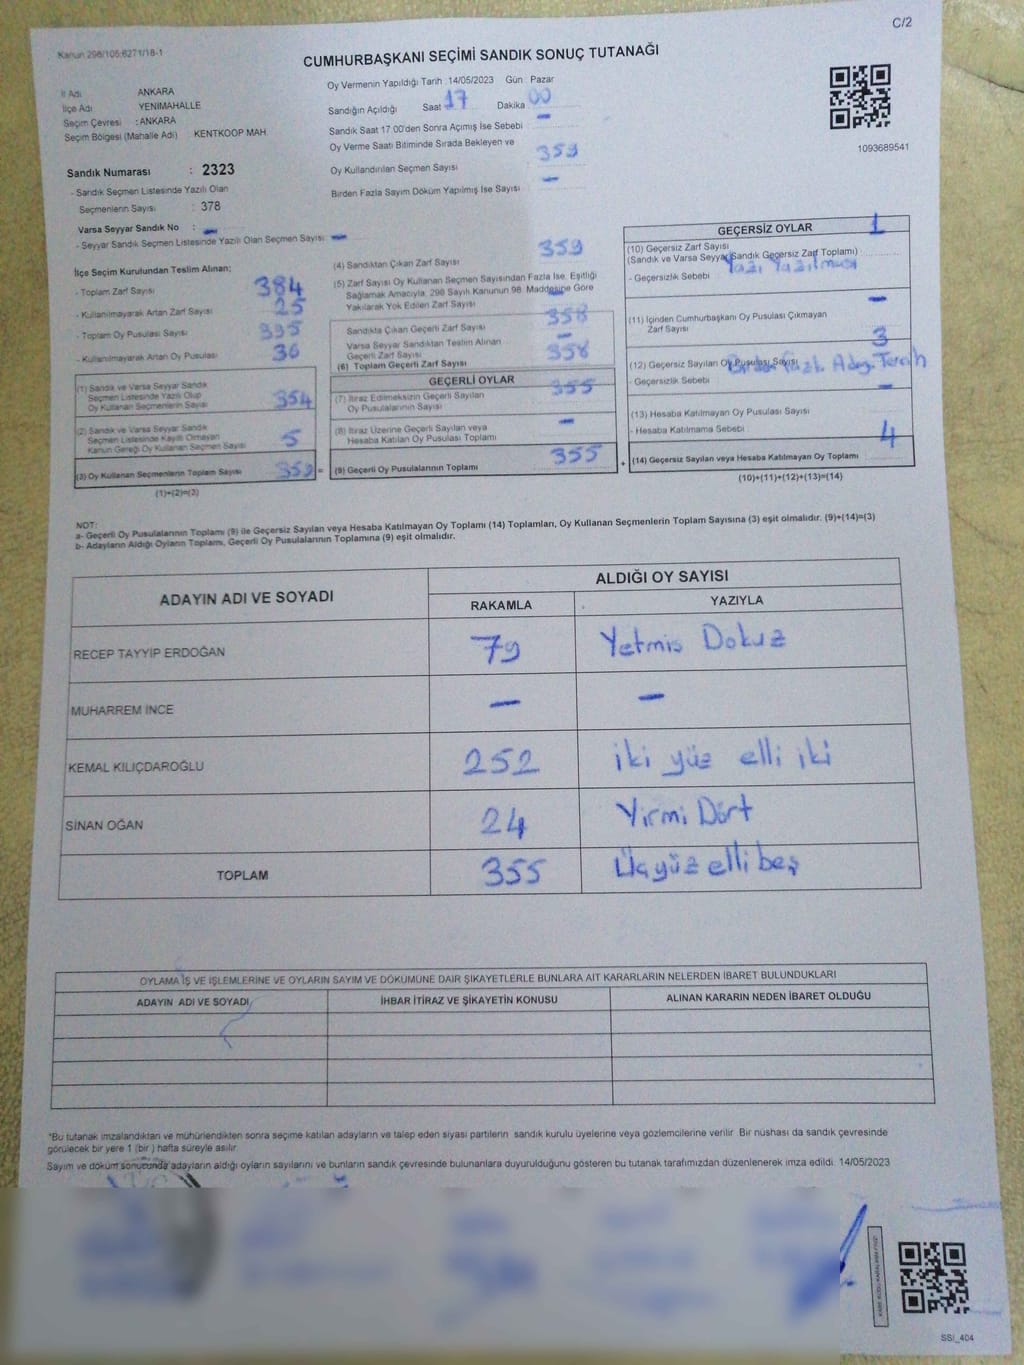 C/2
Kanun 298/105;6271/18-1
CUMHURBAŞKANI SEÇİMİ SANDIK SONUÇ TUTANAĞI
İl Adı ANKARA
İlçe Adı YENİMAHALLE
Seçim Çevresi : ANKARA
Seçim Bölgesi (Mahalle Adı) KENTKOOP MAH
Sandık Numarası : 2323
- Sandık Seçmen Listesinde Yazılı Olan
Seçmenlerin Sayısı : 378
Varsa Seyyar Sandık No : -
- Seyyar Sandık Seçmen Listesinde Yazılı Olan Seçmen Sayısı -
Oy Vermenin Yapıldığı Tarih : 14/05/2023 Gün : Pazar
Sandığın Açıldığı Saat 17 Dakika 00
Sandık Saat 17.00'den Sonra Açımış İse Sebebi -
Oy Verme Saati Bitiminde Sırada Bekleyen ve
Oy Kullandırılan Seçmen Sayısı 359
Birden Fazla Sayım Döküm Yapılmış İse Sayısı -
1093689541
İlçe Seçim Kurulundan Teslim Alınan;
- Toplam Zarf Sayısı 384
- Kullanılmayarak Artan Zarf Sayısı 25
- Toplam Oy Pusulası Sayısı 395
- Kullanılmayarak Artan Oy Pusulası 36
(1) Sandık ve Varsa Seyyar Sandık
Seçmen Listesinde Yazılı Olup
Oy Kullanan Seçmenlerin Sayısı 354
(2) Sandık ve Varsa Seyyar Sandık
Seçmen Listesinde Kayıtlı Olmayan
Kanun Gereği Oy Kullanan Seçmen Sayısı 5
(3) Oy Kullanan Seçmenlerin Toplam Sayısı 359 =
(1)+(2)=(3)
(4) Sandıktan Çıkan Zarf Sayısı 359
(5) Zarf Sayısı Oy Kullanan Seçmen Sayısından Fazla İse, Eşitliği
Sağlamak Amacıyla, 298 Sayılı Kanunun 98. Maddesine Göre
Yakılarak Yok Edilen Zarf Sayısı -
Sandıkta Çıkan Geçerli Zarf Sayısı 358
Varsa Seyyar Sandıktan Teslim Alınan
Geçerli Zarf Sayısı -
(6) Toplam Geçerli Zarf Sayısı 358
GEÇERLİ OYLAR
(7) İtiraz Edilmeksizin Geçerli Sayılan
Oy Pusulalarının Sayısı 355
(8) İtiraz Üzerine Geçerli Sayılan veya
Hesaba Katılan Oy Pusulası Toplamı -
(9) Geçerli Oy Pusulalarının Toplamı 355 +
GEÇERSİZ OYLAR
(10) Geçersiz Zarf Sayısı 1
(Sandık ve Varsa Seyyar Sandık Geçersiz Zarf Toplamı)
- Geçersizlik Sebebi Yazı Yazılması
(11) İçinden Cumhurbaşkanı Oy Pusulası Çıkmayan
Zarf Sayısı -
(12) Geçersiz Sayılan Oy Pusulası Sayısı 3
- Geçersizlik Sebebi Birden Fazla Aday Tercih
(13) Hesaba Katılmayan Oy Pusulası Sayısı -
- Hesaba Katılmama Sebebi
(14) Geçersiz Sayılan veya Hesaba Katılmayan Oy Toplamı 4
(10)+(11)+(12)+(13)=(14)
NOT:
a- Geçerli Oy Pusulalarının Toplamı (9) ile Geçersiz Sayılan veya Hesaba Katılmayan Oy Toplamı (14) Toplamları, Oy Kullanan Seçmenlerin Toplam Sayısına (3) eşit olmalıdır. (9)+(14)=(3)
b- Adayların Aldığı Oyların Toplamı, Geçerli Oy Pusulalarının Toplamına (9) eşit olmalıdır.
ADAYIN ADI VE SOYADI ALDIĞI OY SAYISI
RAKAMLA YAZIYLA
RECEP TAYYİP ERDOĞAN 79 Yetmis Dokuz
MUHARREM İNCE - -
KEMAL KILIÇDAROĞLU 252 iki yüz elli iki
SİNAN OĞAN 24 Yirmi Dört
TOPLAM 355 Üçyüz elli beş
OYLAMA İŞ VE İŞLEMLERİNE VE OYLARIN SAYIM VE DÖKÜMÜNE DAİR ŞİKAYETLERLE BUNLARA AİT KARARLARIN NELERDEN İBARET BULUNDUKLARI
ADAYIN ADI VE SOYADI İHBAR İTİRAZ VE ŞİKAYETİN KONUSU ALINAN KARARIN NEDEN İBARET OLDUĞU
*Bu tutanak imzalandıktan ve mühürlendikten sonra seçime katılan adayların ve talep eden siyasi partilerin sandık kurulu üyelerine veya gözlemcilerine verilir. Bir nüshası da sandık çevresinde
görülecek bir yere 1 (bir) hafta süreyle asılır.
Sayım ve döküm sonucunda adayların aldığı oyların sayılarını ve bunların sandık çevresinde bulunanlara duyurulduğunu gösteren bu tutanak tarafımızdan düzenlenerek imza edildi. 14/05/2023
SSİ_404